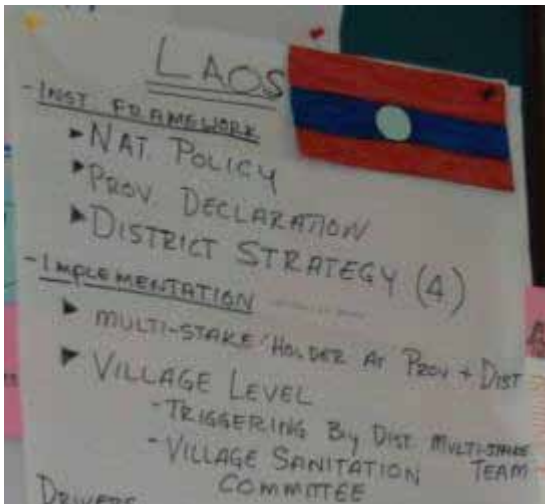 LAOS
- INST. FRAMEWORK
▸ NAT. POLICY
▸ PROV. DECLARATION
▸ DISTRICT STRATEGY (4)
- IMPLEMENTATION
▸ MULTI-STAKE HOLDER AT PROV + DIST
▸ VILLAGE LEVEL
- TRIGGERING By DIST MULTI-STAKE TEAM
- VILLAGE SANITATION COMMITTEE
DRIVERS